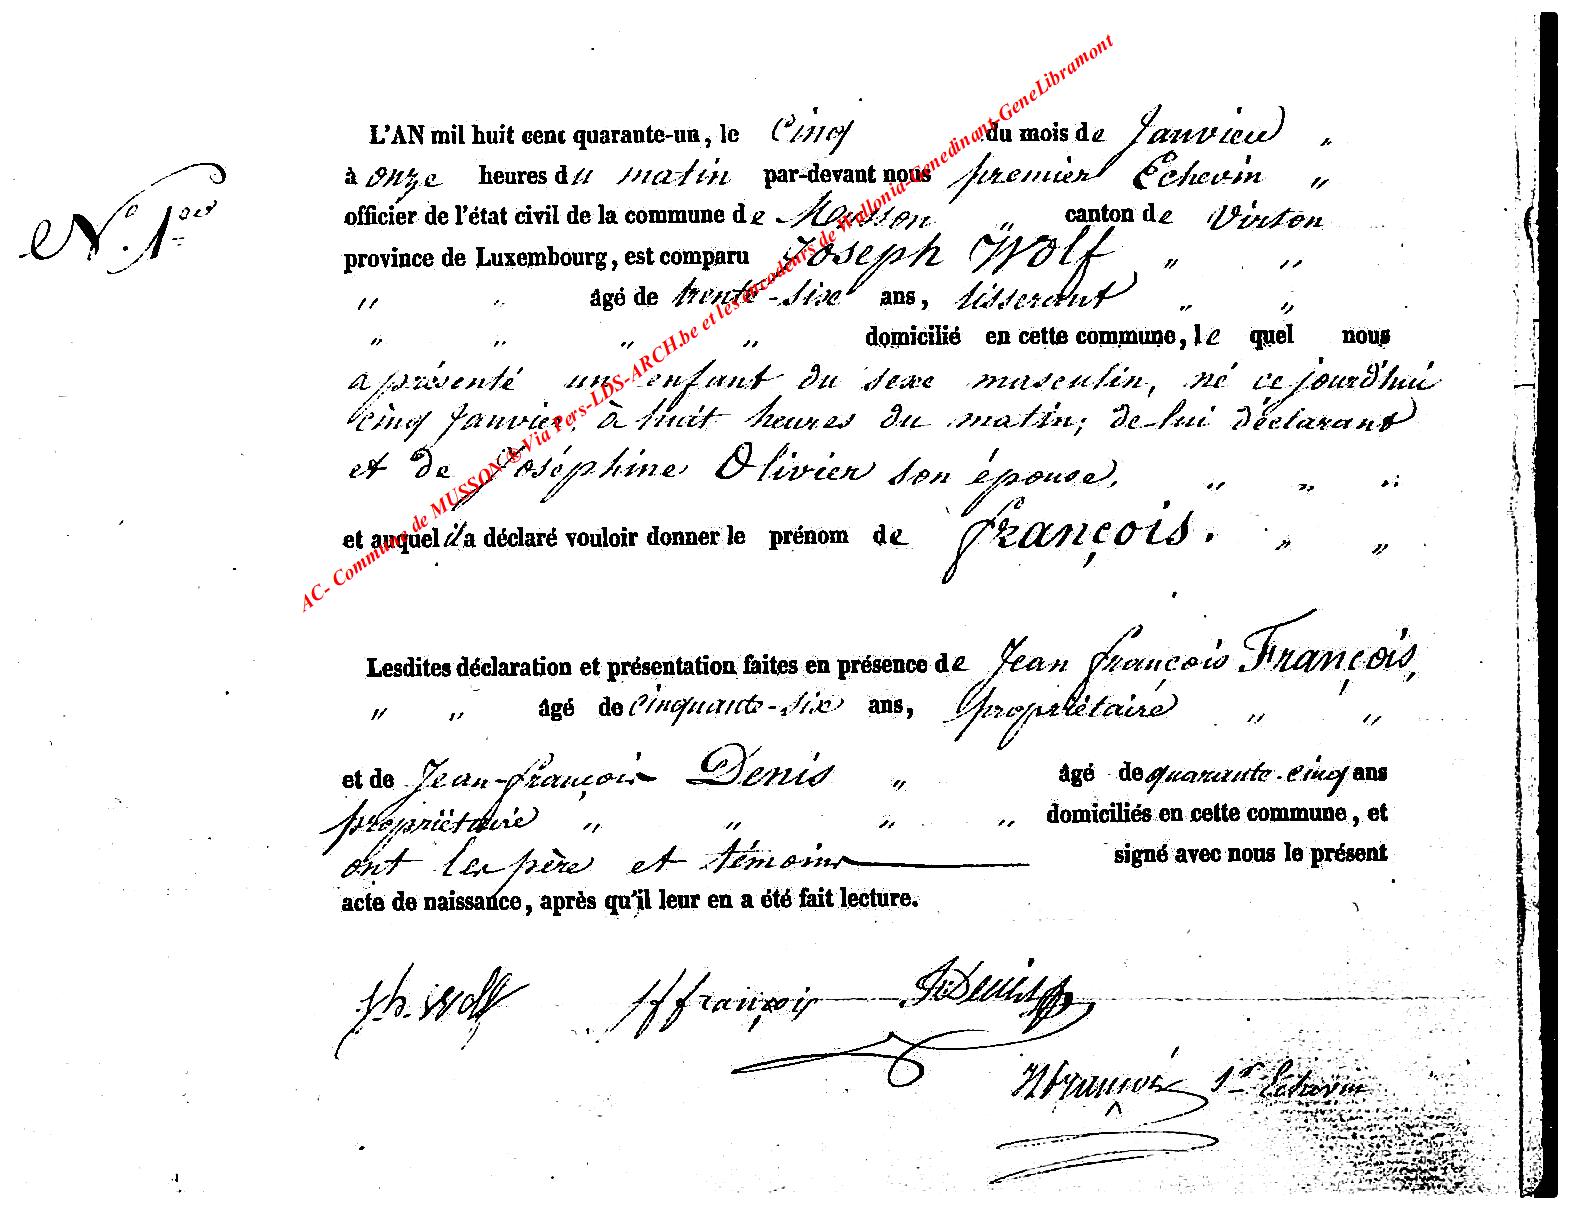 N.° 1er
L'AN mil huit cent quarante-un, le Cinq du mois de Janvier "
à onze heures du matin par-devant nous premier Echevin "
officier de l'état civil de la commune de Musson " canton de Virton
province de Luxembourg, est comparu Joseph Wolf " "
" " âgé de trente-six ans, tisserant " "
" " " " domicilié en cette commune, le quel nous
a présenté un enfant du sexe masculin, né ce jourd'hui
cinq Janvier, à huit heures du matin; de lui déclarant
et de Joséphine Olivier son épouse. " " "
et auquel il a déclaré vouloir donner le prénom de François. " "
Lesdites déclaration et présentation faites en présence de Jean François François,
" " âgé de cinquante-six ans, propriétaire " "
et de Jean-François Denis " âgé de quarante-cinq ans
propriètaire " " " " domiciliés en cette commune, et
ont les père et témoins signé avec nous le présent
acte de naissance, après qu'il leur en a été fait lecture.
Jh. Wolf JF françois JF Denis
françois 1er Echevin
AC- Commune de MUSSON @ Via Pers-LDS-ARCH.be et les encodeurs de Wallonia-Genedinant-GeneLibramont